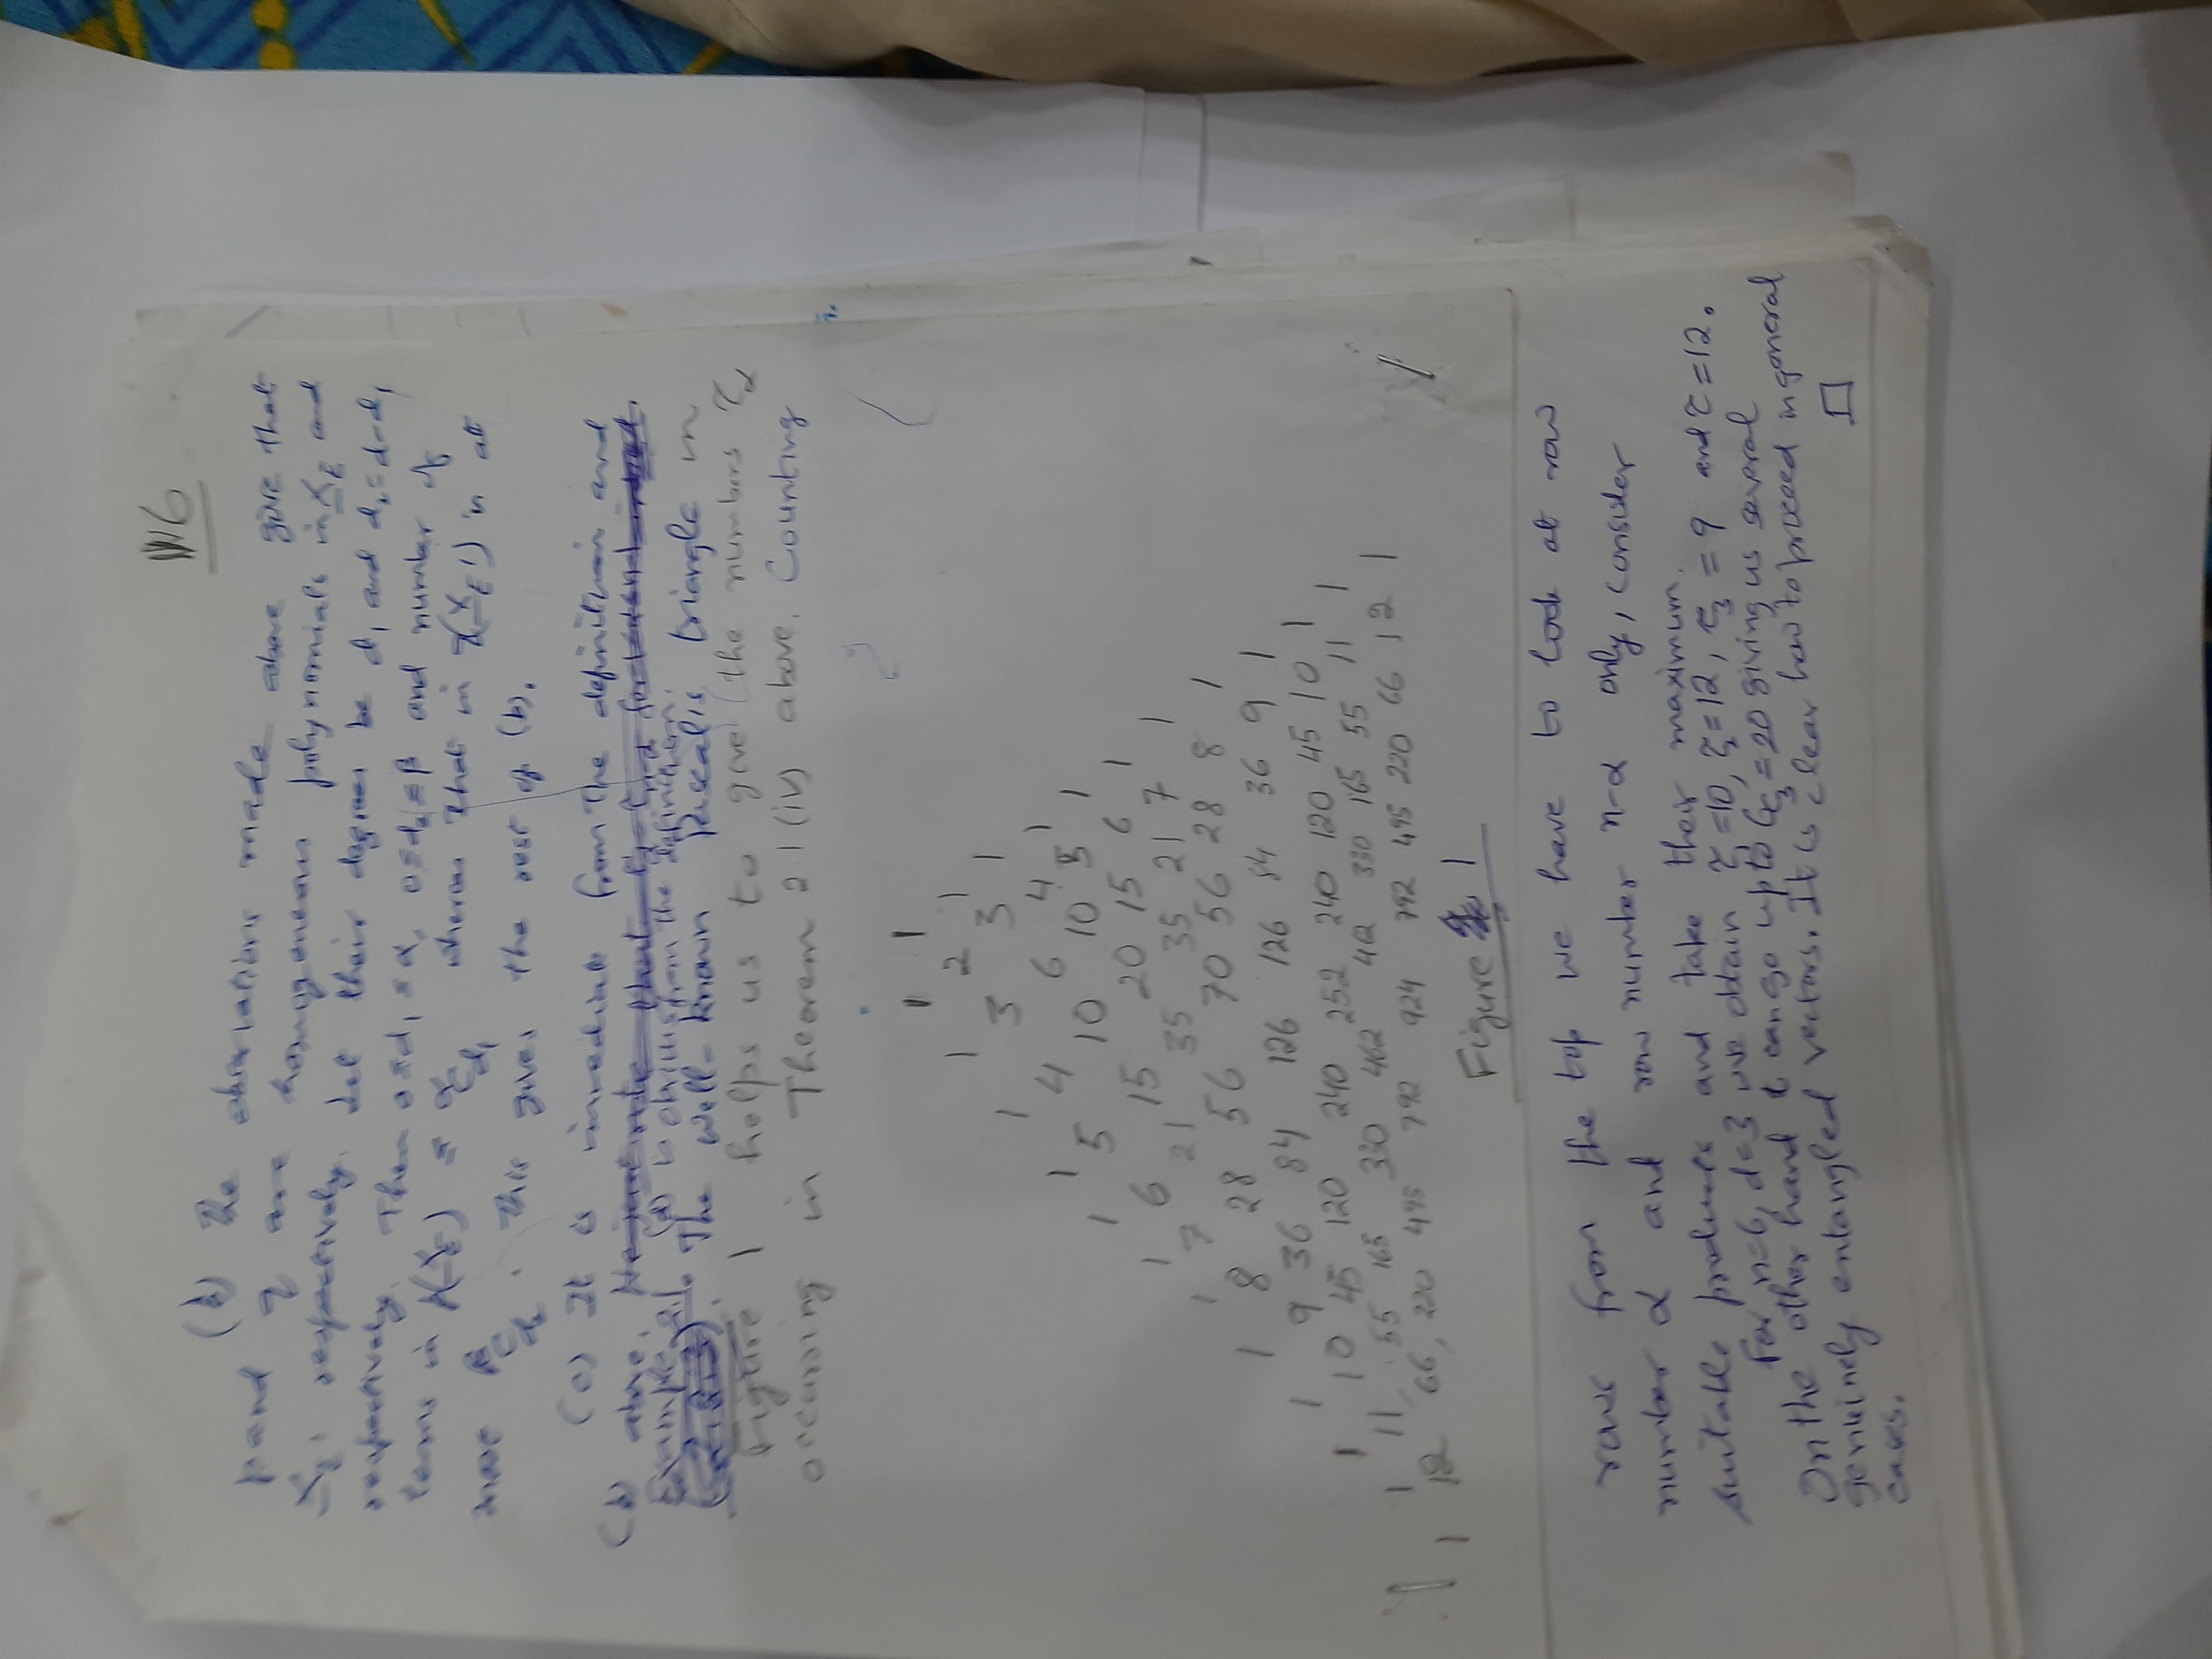 6
(b) The observations made above give that
p and q are homogeneous polynomials in X_E and
X_E' respectively. Let their degrees be d₁ and d₂=d-d₁
respectively. Then 0≤d₁≤α, 0≤d₂≤β and number of
terms in p(X_E) ≤ αC_d₁ whereas that in q(X_E') is at
most βC_d₂. This gives the rest of (b).
(c) It is immediate from the definition and
(b) above.
Example 2.1. (d) is obvious from the definition.
The well-known Pascal's triangle in
Figure 1 helps us to give the numbers τ_α
occurring in Theorem 2.1(iv) above. Counting
1 1
1 2 1
1 3 3 1
1 4 6 4 1
1 5 10 10 5 1
1 6 15 20 15 6 1
1 7 21 35 35 21 7 1
1 8 28 56 70 56 28 8 1
1 9 36 84 126 126 84 36 9 1
1 10 45 120 240 252 240 120 45 10 1
1 11 55 165 330 462 462 330 165 55 11 1
1 12 66 220 495 792 924 792 495 220 66 12 1
Figure 1
rows from the top we have to look at row
number α and row number n-α only, consider
suitable products and take their maximum.
For n=6, d=3 we obtain τ₁=10, τ₂=12, τ₃=9 and τ=12.
On the other hand t can go upto 6C₃=20 giving us several
genuinely entangled vectors. It is clear how to proceed in general
cases. □